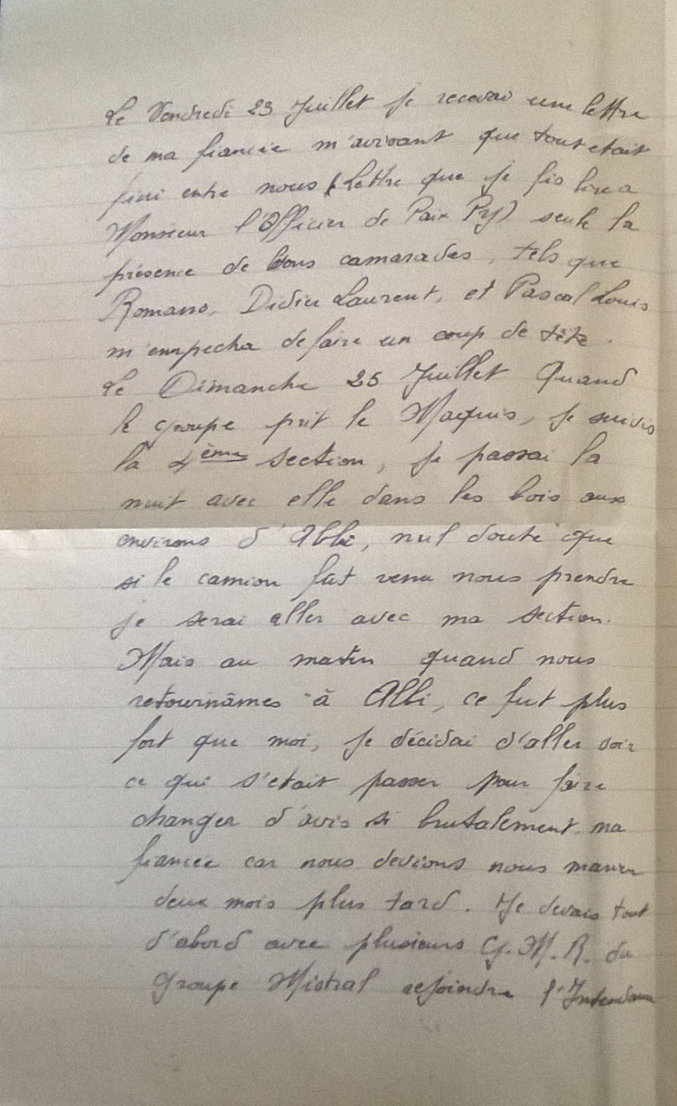 Le Vendredi 23 Juillet je recevai une lettre
de ma fiancée m'avisant que tout etait
fini entre nous (Lettre que je fis lire a
Monsieur l'Officier de Paix Pry) seule la
présence de bons camarades, tels que
Romano, Didier Laurent, et Pascal Louis
m'empecha de faire un coup de tête.
Le Dimanche 25 Juillet Quand
le groupe prit le Maquis, je suivis
la 4ème section, je passai la
nuit avec elle dans les bois aux
environs d'Albi, nul doute que
si le camion fut venu nous prendre
je serai aller avec ma section.
Mais au matin quand nous
retournâmes à Albi, ce fut plus
fort que moi, je décidai d'aller voir
ce qui s'etait passer pour faire
changer d'avis si brutalement ma
fiancée car nous devions nous marier
deux mois plus tard. Je devais tout
d'abord avec plusieurs G.M.R. du
groupe Mistral rejoindre l'Intendance